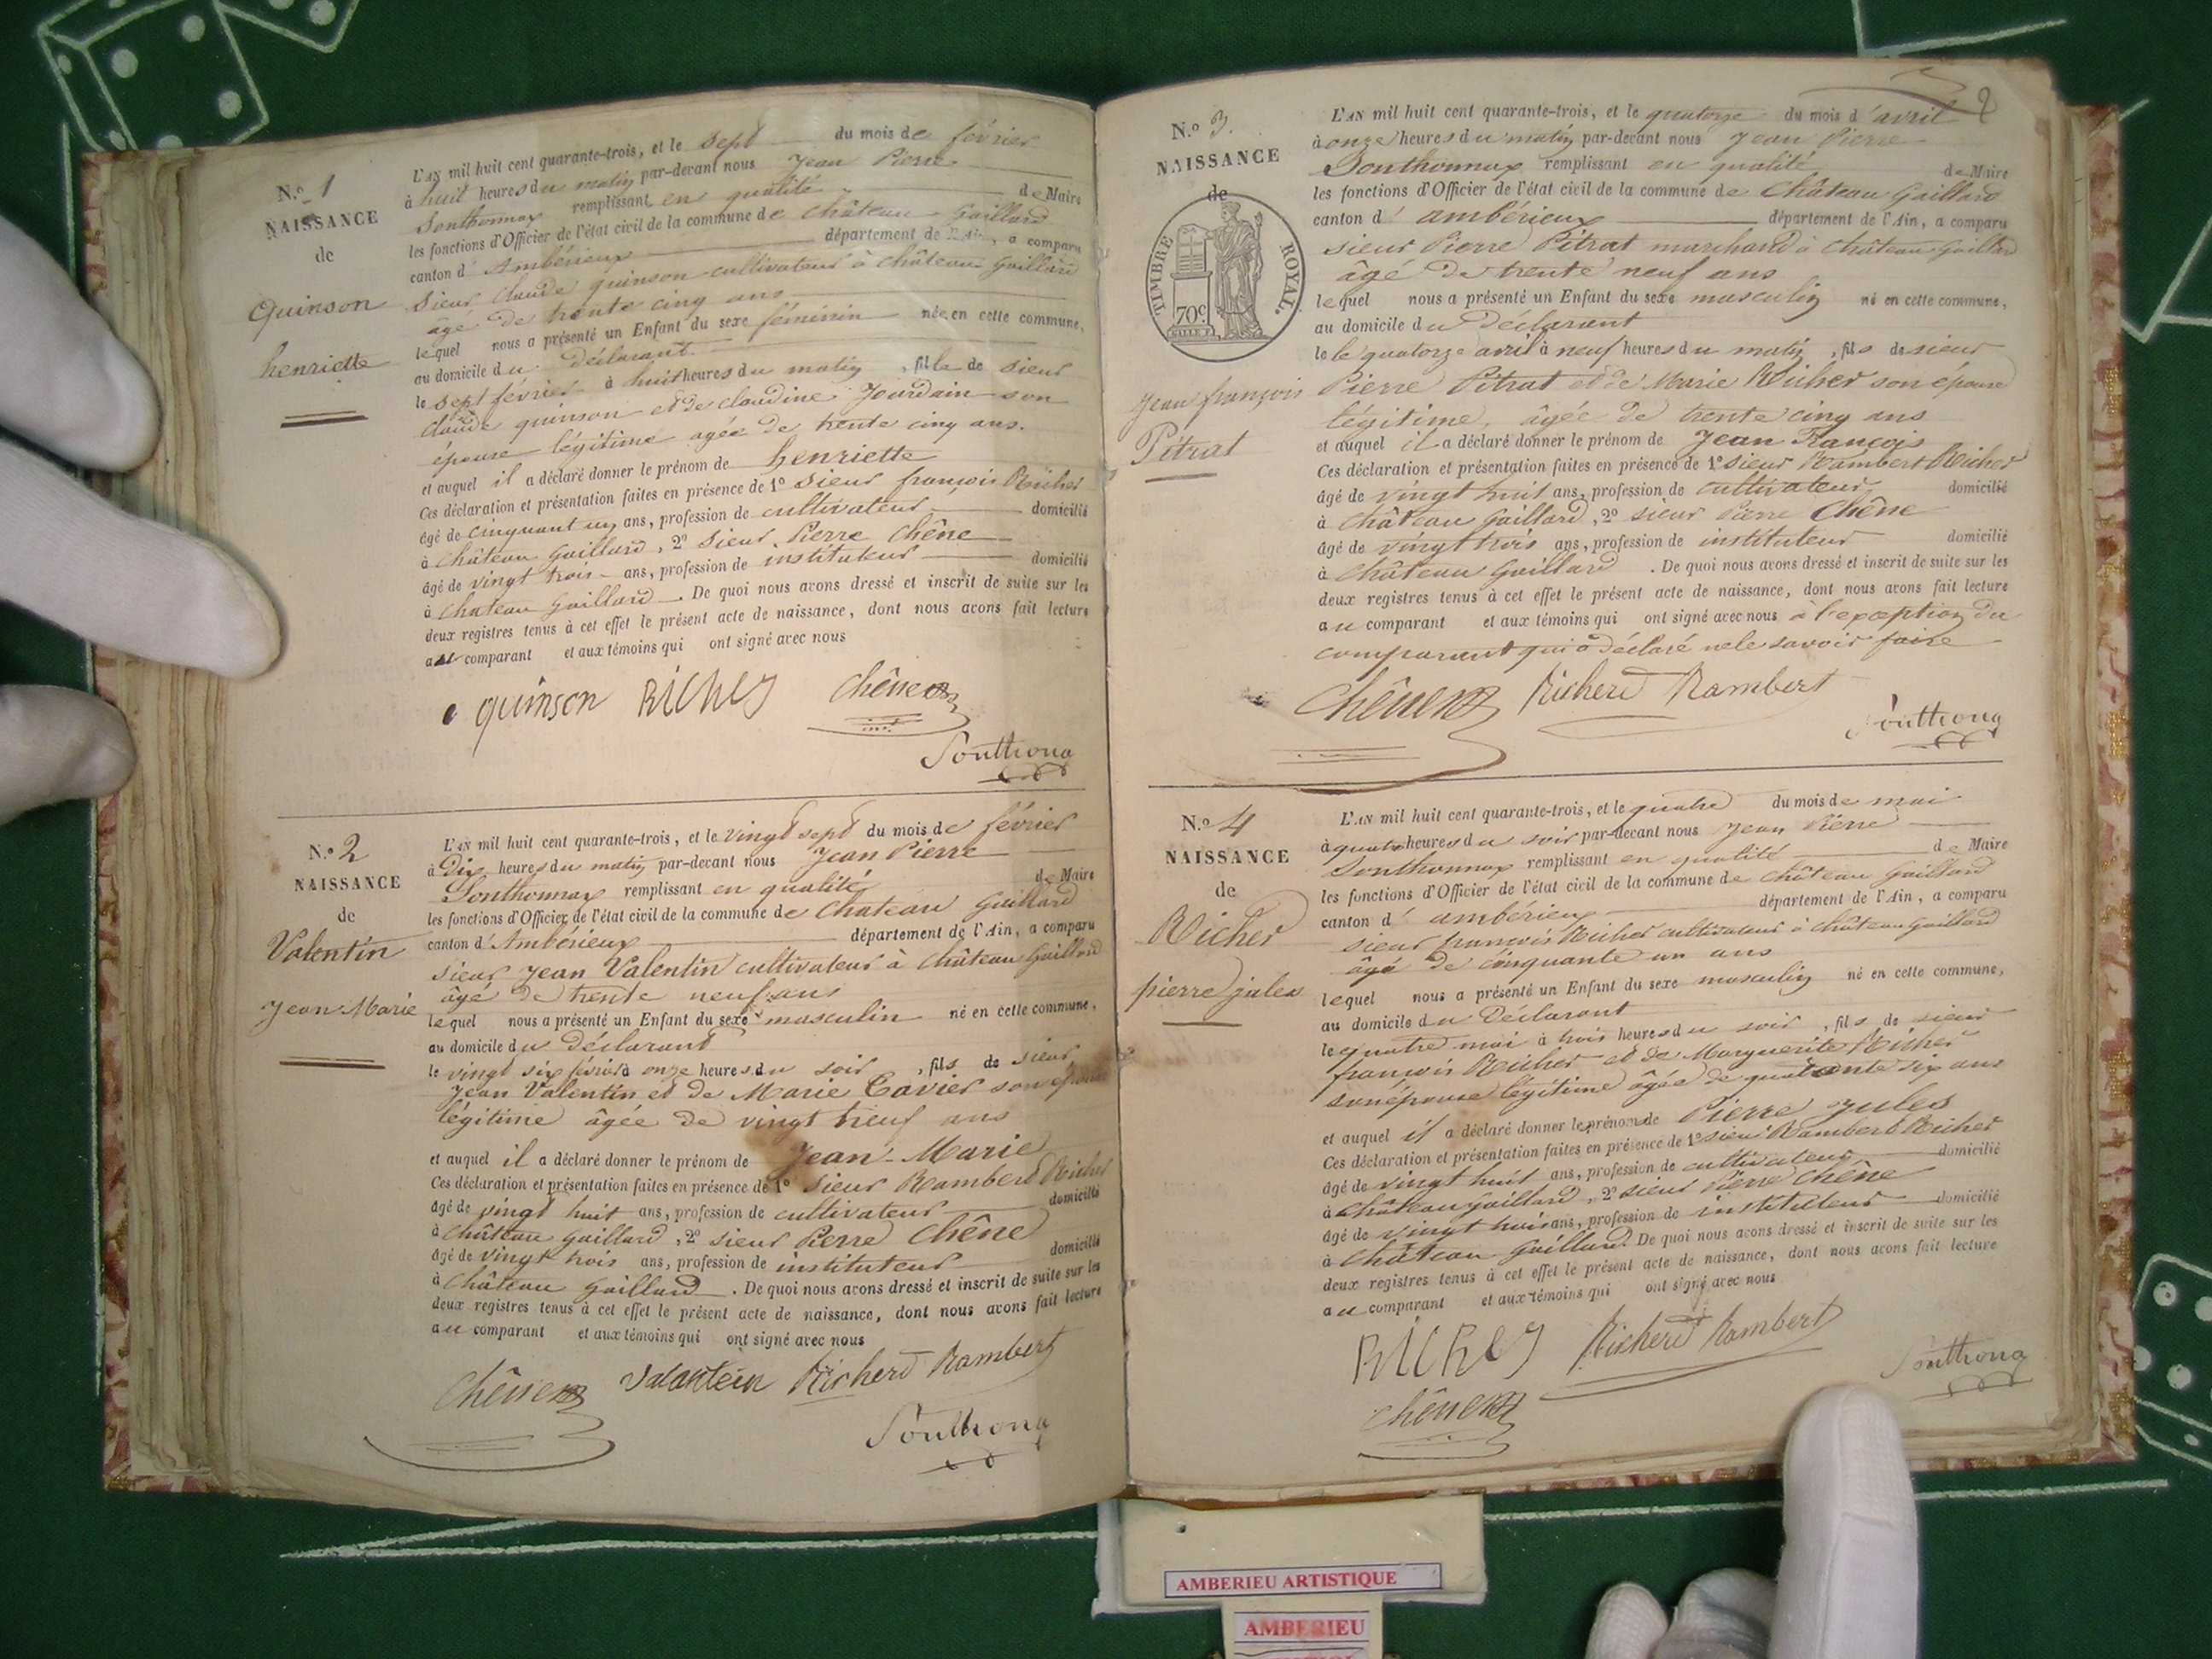 N.o 1
NAISSANCE
de
Quinson
henriette
L'AN mil huit cent quarante-trois, et le sept du mois de février
à huit heures du matin par-devant nous Jean Pierre
Sonthonnax remplissant en qualité de Maire
les fonctions d'Officier de l'état civil de la commune de Château Gaillard
canton d' Ambérieux département de l'Ain, a comparu
Sieur Claude quinson cultivateur à Château Gaillard
âgé de trente cinq ans
lequel nous a présenté un Enfant du sexe féminin née en cette commune,
au domicile du déclarant
le sept février à huit heures du matin, fille de sieur
Claude quinson et de claudine Jourdain son
épouse légitime agée de trente cinq ans.
et auquel il a déclaré donner le prénom de henriette
Ces déclaration et présentation faites en présence de 1o Sieur françois Richer
âgé de cinquant un ans, profession de cultivateur domicilié
à Château Gaillard, 2o Sieur Pierre Chêne
âgé de vingt trois ans, profession de instituteur domicilié
à Chateau Gaillard. De quoi nous avons dressé et inscrit de suite sur les
deux registres tenus à cet effet le présent acte de naissance, dont nous avons fait lecture
au comparant et aux témoins qui ont signé avec nous
quinson Richer Chêne
Southona
N.o 2
NAISSANCE
de
Valentin
Jean Marie
L'AN mil huit cent quarante-trois, et le vingt sept du mois de février
à Dix heures du matin par-devant nous Jean Pierre
Sonthonnax remplissant en qualité de Maire
les fonctions d'Officier de l'état civil de la commune de Chateau Gaillard
canton d' Ambérieux département de l'Ain, a comparu
sieur Jean Valentin cultivateur à Château Gaillard
âgé de trente neuf ans
lequel nous a présenté un Enfant du sexe masculin né en cette commune,
au domicile du déclarant
le vingt six février à onze heures du soir, fils de sieur
Jean Valentin et de Marie Cavier son épouse
légitime âgée de vingt neuf ans
et auquel il a déclaré donner le prénom de Jean-Marie
Ces déclaration et présentation faites en présence de 1o Sieur Rambert Richer
âgé de vingt huit ans, profession de cultivateur domicilié
à Château gaillard, 2o sieur Pierre Chêne
âgé de vingt trois ans, profession de instituteur domicilié
à Château Gaillard. De quoi nous avons dressé et inscrit de suite sur les
deux registres tenus à cet effet le présent acte de naissance, dont nous avons fait lecture
au comparant et aux témoins qui ont signé avec nous
Chêne Valantein Richerd Rambert
Southona
2
N.o 3.
NAISSANCE
de
TIMBRE ROYAL.
70c
Jean françois
Pétrat
L'AN mil huit cent quarante-trois, et le quatorze du mois d'avril
à onze heures du matin par-devant nous Jean Pierre
Sonthonnax remplissant en qualité de Maire
les fonctions d'Officier de l'état civil de la commune de Château Gaillard
canton d' ambérieux département de l'Ain, a comparu
sieur Pierre Pétrat marchand à Château-Gaillard
âgé de trente neuf ans
lequel nous a présenté un Enfant du sexe masculin né en cette commune,
au domicile du Déclarant
le le quatorze avril à neuf heures du matin, fils de sieur
Pierre Pétrat et de Marie Richer son épouse
légitime, âgée de trente cinq ans
et auquel il a déclaré donner le prénom de Jean François
Ces déclaration et présentation faites en présence de 1o sieur Rambert Richer
âgé de vingt huit ans, profession de cultivateur domicilié
à Château Gaillard, 2o sieur Pierre Chêne
âgé de vingt trois ans, profession de instituteur domicilié
à Château Gaillard. De quoi nous avons dressé et inscrit de suite sur les
deux registres tenus à cet effet le présent acte de naissance, dont nous avons fait lecture
au comparant et aux témoins qui ont signé avec nous à l'exception du
comparant qui a déclaré ne le savoir faire
Chêne Richerd Rambert
Southona
N.o 4
NAISSANCE
de
Richer
pierre jules
L'AN mil huit cent quarante-trois, et le quatre du mois de mai
à quatre heures du soir par-devant nous Jean Pierre
Sonthonnax remplissant en qualité de Maire
les fonctions d'Officier de l'état civil de la commune de Château Gaillard
canton d' ambérieux département de l'Ain, a comparu
sieur françois Richer cultivateur à Château Gaillard
âgé de cinquante un ans
lequel nous a présenté un Enfant du sexe masculin né en cette commune,
au domicile du Déclarant
le quatre mai à trois heures du soir, fils de sieur
françois Richer et de Marguerite Richer
son épouse légitime âgée de quarante six ans
et auquel il a déclaré donner le prénom de Pierre Jules
Ces déclaration et présentation faites en présence de 1o sieur Rambert Richer
âgé de vingt huit ans, profession de cultivateur domicilié
à Château Gaillard, 2o sieur Pierre Chêne
âgé de vingt trois ans, profession de instituteur domicilié
à Château Gaillard. De quoi nous avons dressé et inscrit de suite sur les
deux registres tenus à cet effet le présent acte de naissance, dont nous avons fait lecture
au comparant et aux témoins qui ont signé avec nous
Richer Richerd Rambert
Chêne
Southona
AMBERIEU ARTISTIQUE
AMBERIEU